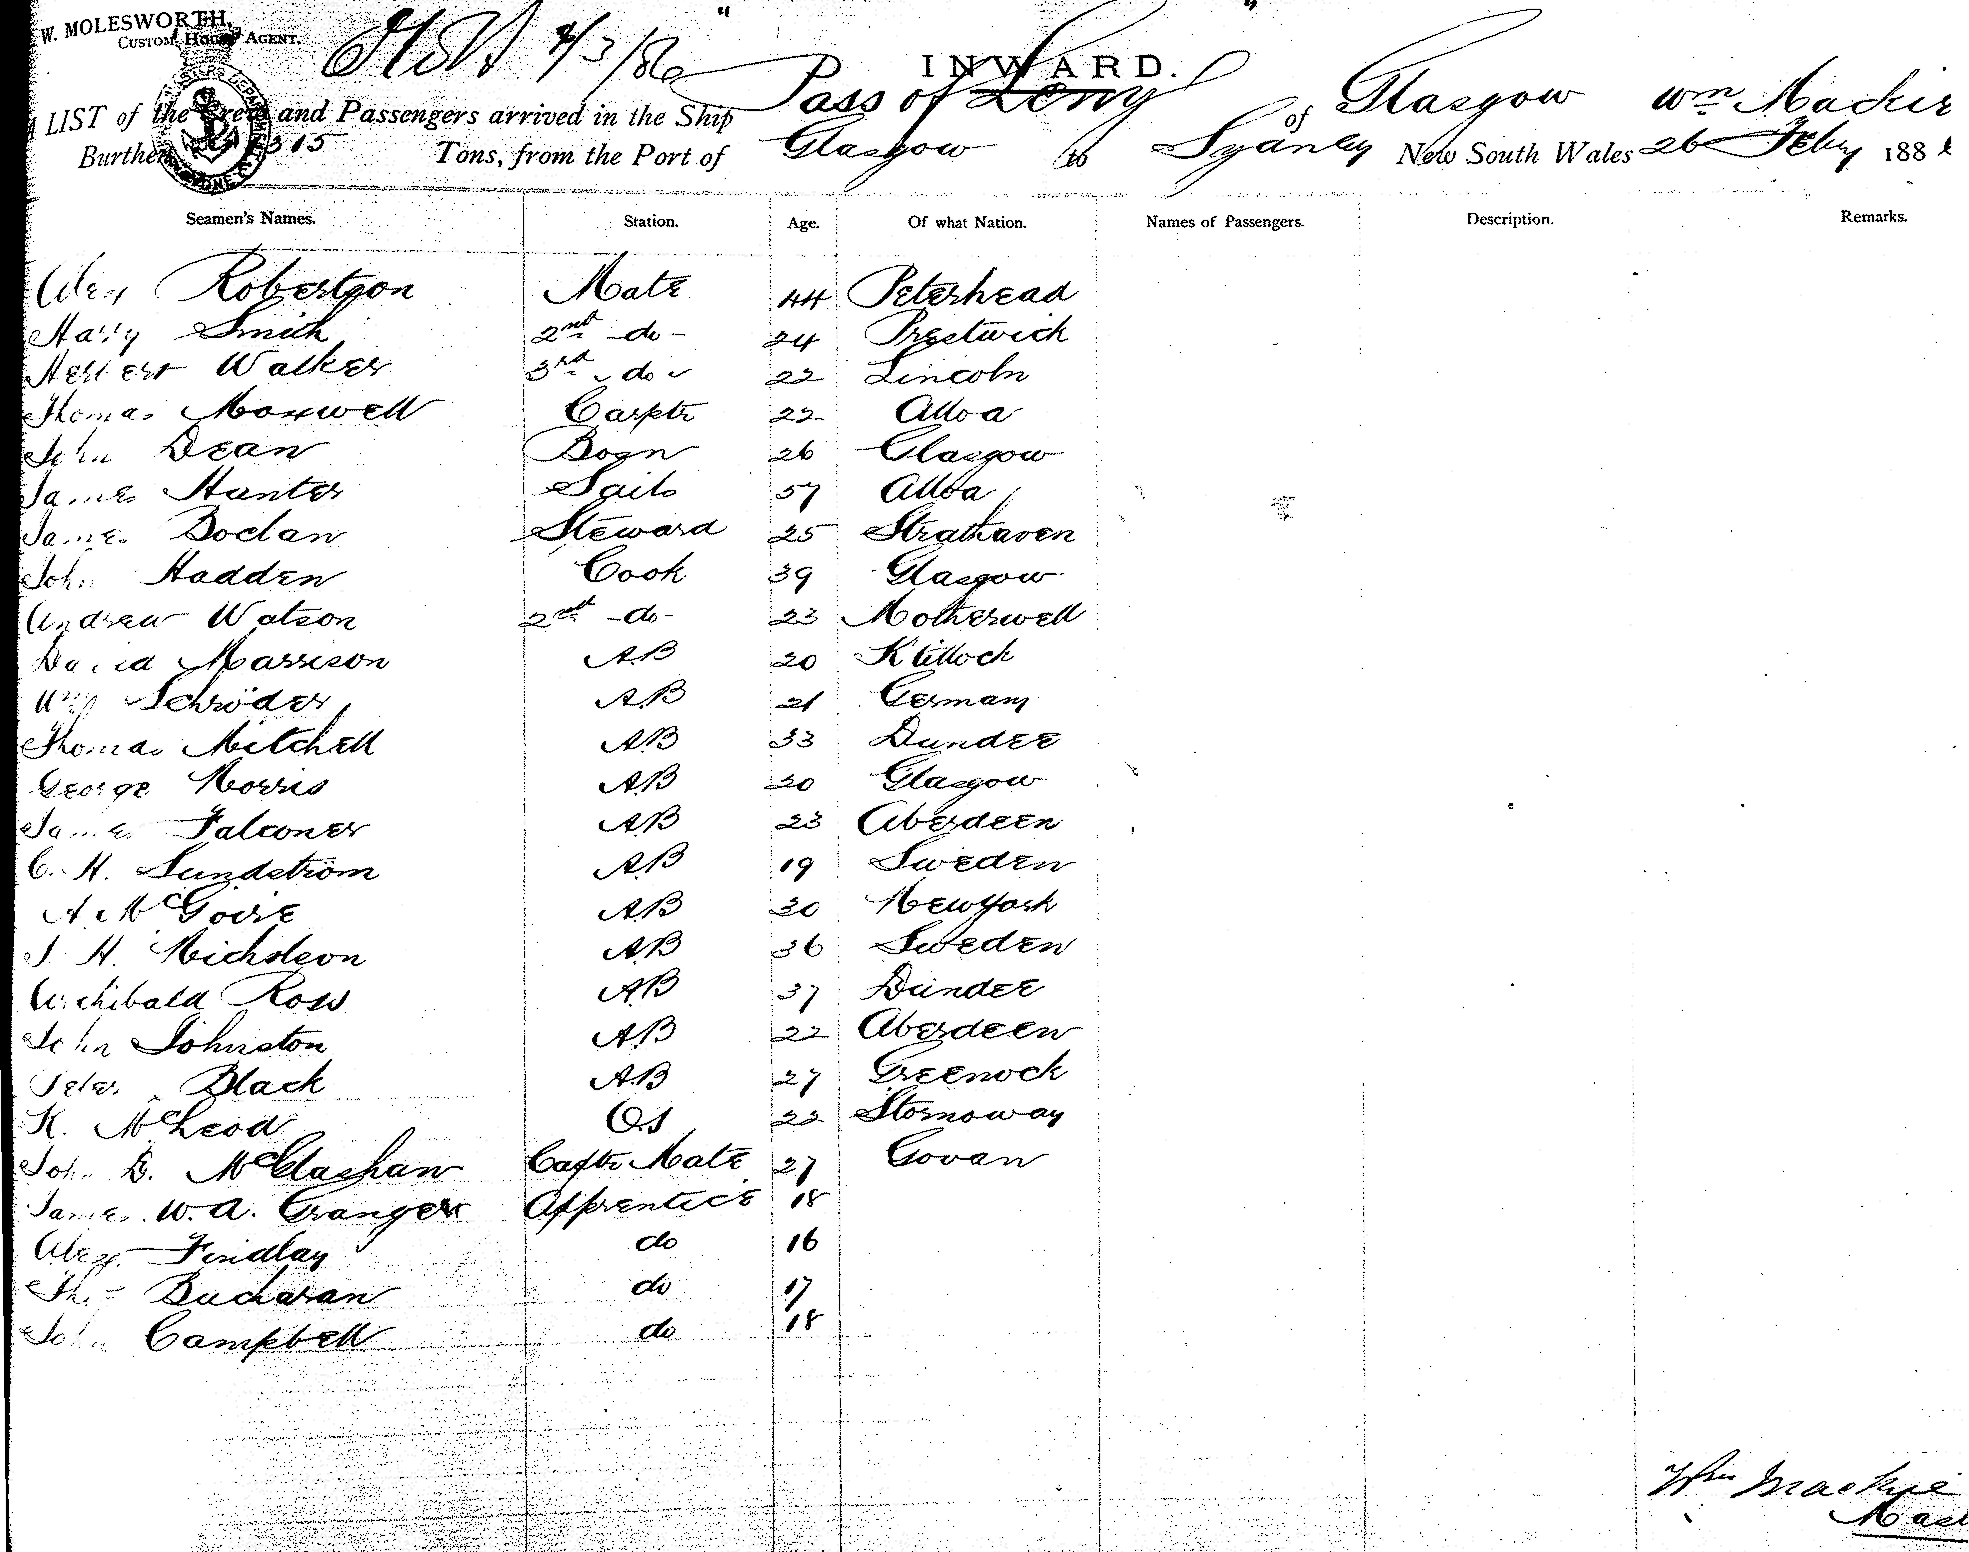 W. MOLESWORTH,
CUSTOM HOUSE AGENT.
4/3/86
INWARD.
"Pass of Leny"
LIST of the Crew and Passengers arrived in the Ship of Glasgow Wm Mackie
Burthen 1315 Tons, from the Port of Glasgow to Sydney New South Wales 26 Feby 188
Seamen's Names. Station. Age. Of what Nation. Names of Passengers. Description. Remarks.
Alex Robertson Mate 44 Peterhead
Harry Smith 2nd -do- 24 Prestwick
Herbert Walker 3rd do 22 Lincoln
Thomas Maxwell Carptr 22 Alloa
John Dean Bosn 26 Glasgow
James Hunter Sails 57 Alloa
James Boclan Steward 25 Strathaven
John Hadden Cook 39 Glasgow
Andrew Watson 2nd -do- 23 Motherwell
David Marrison AB 20
Wm Schröder AB 21 Germany
Thomas Mitchell AB 33 Dundee
George Norris AB 20 Glasgow
James Falconer AB 23 Aberdeen
C. H. Sundström AB 19 Sweden
A. McGoire AB 30 New York
J. H. Nicholson AB 36 Sweden
Archibald Ross AB 37 Dundee
John Johnston AB 22 Aberdeen
Peter Black AB 27 Greenock
K. McLeod OS 22 Stornoway
John B. McGlashan Captn Mate 27 Govan
James W. A. Granger Apprentice 18
Alex. Findlay do 16
Thos Buchanan do 17
John Campbell do 18
Wm Mackie